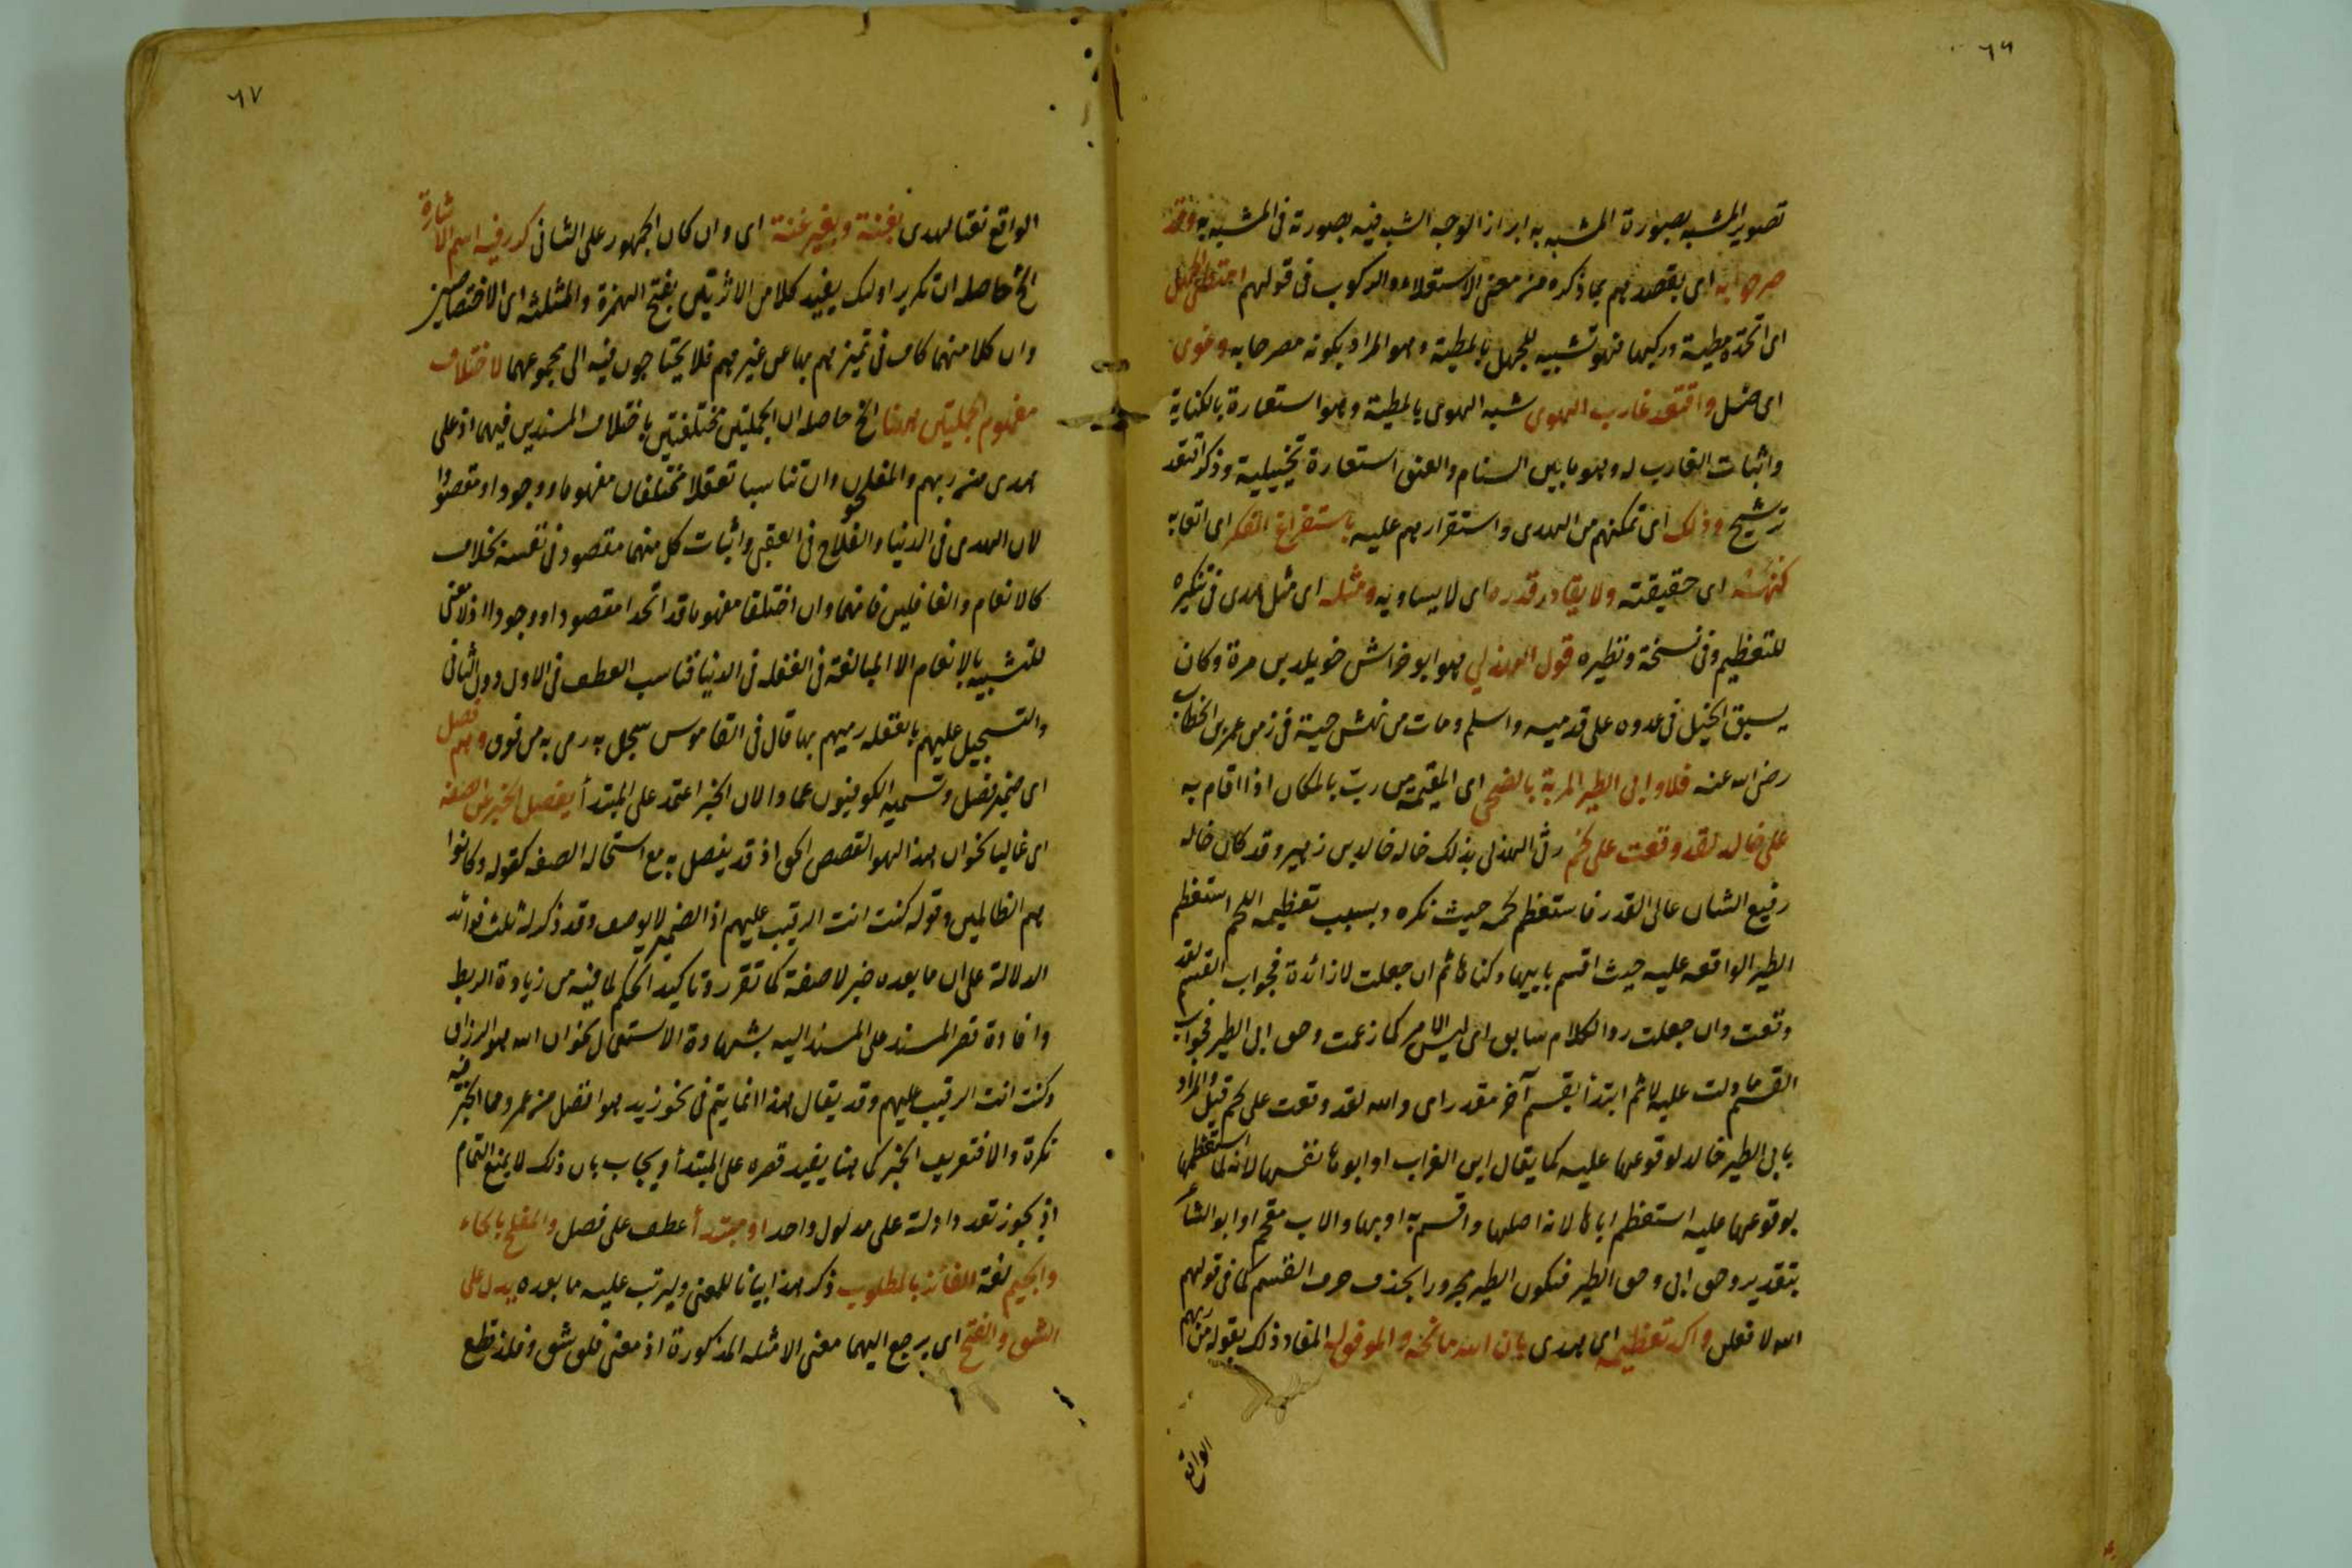 ٦٦
تصوير المشبه بصورة المشبه به ابرازا لوجه الشبه فيه بصورته فى المشبه به وقد
صرحوا به اى بقصدهم بما ذكره من معنى الاستعلاء والركوب فى قولهم امتطى الجهل
اى اتخذه مطية وركبها فهو تشبيه للجهل بالمطية وهو المراد بكونه مصرحا به وغوى
اى ضل واقتعد غارب الهوى شبه الهوى بالمطية وهو استعارة بالكناية
واثبات الغارب له وهو ما بين السنام والعنق استعارة تخييلية وذكر اقتعد
ترشيح وذلك اى تمكنهم من الهدى واستقرارهم عليه باستفراغ الفكر اى اتعابه
كنهه اى حقيقته ولا يقادر قدره اى لا يساويه ومثله اى مثل هدى فى تنكيره
للتعظيم وفى نسخة ونظيره قول الهذلي هو ابو خراش خويلد بن مرة وكان
يسبق الخيل فى عدوه على قدميه واسلم ومات من نهش حية فى زمن عمر بن الخطاب
رضى الله عنه فلا وابى الطير المربة بالضحى اى المقيمة من ربّ بالمكان اذا اقام به
على خالد لقد وقعت على لحم رثى الهذلى بذلك خاله خالد بن زهير وقد كان خاله
رفيع الشان عالى القدر فاستعظم لحمه حيث نكره وبسبب تعظيمه اللحم استعظم
الطير الواقعه عليه حيث اقسم بابيها وكناها ثم ان جعلت لا زائدة فجواب القسم لقد
وقعت وان جعلت ردا لكلام سابق اى ليس الامر كما زعمت وحق ابى الطير فجواب
القسم ما دلت عليه لا ثم ابتدأ بقسم آخر مقدر اى والله لقد وقعت على لحم قيل والمراد
بابى الطير خالد لوقوعها عليه كما يقال ابن الغراب او ابوها نفسها لانه لما استعظمها
بوقوعها عليه استعظم اباها لانه اصلها واقسم به او بها والاب مقحم او ابو الشاعر
بتقدير وحق ابى وحق الطير فيكون الطير مجرورا بحذف حرف القسم كما فى قولهم
الله لافعلن واكد تعظيمه اى هدى بان الله مانحه والموفق له المفاد ذلك بقوله من ربهم
الواقع
٦٧
الواقع نعتا لهدى بغنة وبغير غنة اى وان كان الجمهور على الثانى كرر فيه اسم الاشارة
الخ حاصله ان تكرير اولئك يفيد كلا من الاثرتين بفتح الهمزة والمثلثه اى الاختصاصين
وان كلا منهما كاف فى تميزهم بها عن غيرهم فلا يحتاجون فيه الى مجموعهما لاختلاف
مفهوم الجملتين ههنا الخ حاصله ان الجملتين مختلفتين باختلاف المسندين فيهما اذ على
هدى من ربهم والمفلحون وان تناسبا تعقلا مختلفان مفهوما ووجودا ومقصودا
لان الهدى فى الدنيا والفلاح فى العقبى واثبات كل منهما مقصود فى نفسه بخلاف
كالانعام والغافلين فانهما وان اختلفا مفهوما قد اتحدا مقصودا ووجودا اذ لا معنى
للتشبيه بالانعام الا المبالغة فى الغفله فى الدنيا فناسب العطف فى الاول دون الثانى
والتسجيل عليهم بالغفله رميهم بها قال فى القاموس سجل به رمى به من فوق وهم فصل
اى ضمير فصل وتسميه الكوفيون عمادا لان الخبر اعتمد على المبتدأ يفصل الخبر عن الصفه
اى غالبا نحو ان هذا لهو القصص الحق اذ قد يفصل به مع استحاله الصفه كقوله وكانوا
هم الظالمين وقوله كنت انت الرقيب عليهم اذ الضمير لا يوصف وقد ذكر له ثلث فوائد
الدلالة على ان ما بعده خبر لا صفة كما تقرر وتاكيد الحكم لما فيه من زيادة الربط
وافادة قصر المسند على المسند اليه بشهادة الاستعمال نحو ان الله هو الرزاق
وكنت انت الرقيب عليهم وقد يقال هذا انما يتم فى نحو زيد هو افضل من عمرو مما الخبر فيه
نكرة والا فتعريف الخبر كما هنا يفيد قصره على المبتدأ ويجاب بان ذلك لا يمنع التمام
اذ يجوز تعدد ادلة على مدلول واحد او مبتدأ عطف على فصل والمفلح بالحاء
والجيم لغة الفائز بالمطلوب ذكر هذا بيانا للمعنى وليرتب عليه ما بعده يدل على
الشق والفتح اى يرجع اليهما معنى الامثله المذكورة اذ معنى فلق شق وفلذ قطع